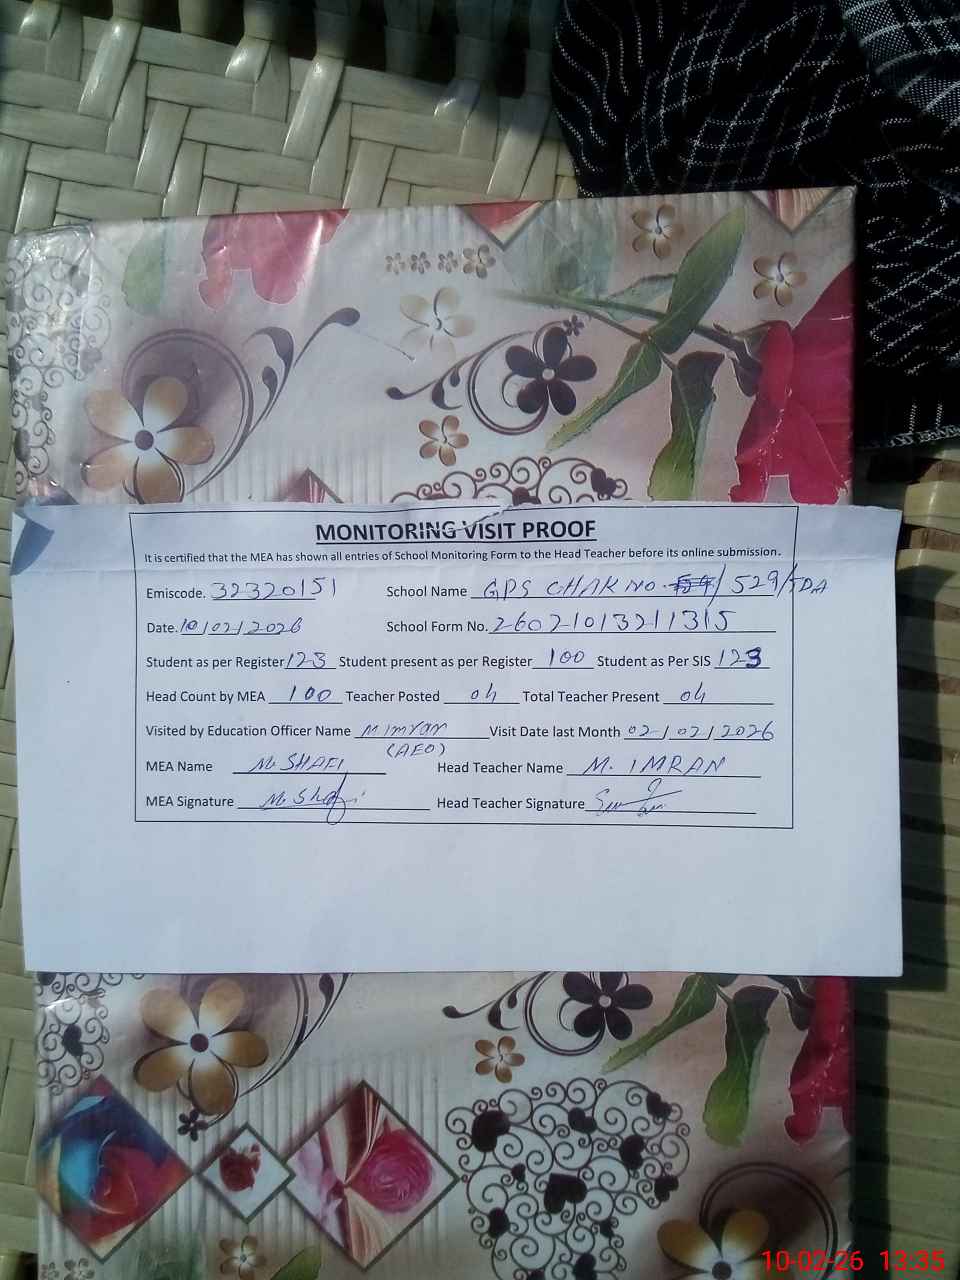 MONITORING VISIT PROOF
It is certified that the MEA has shown all entries of School Monitoring Form to the Head Teacher before its online submission.
Emiscode. 32320151 School Name GPS CHAK NO. / 529/TDA
Date. 10/02/2026 School Form No. 26021013211315
Student as per Register 123 Student present as per Register 100 Student as Per SIS 123
Head Count by MEA 100 Teacher Posted 04 Total Teacher Present 04
Visited by Education Officer Name M imran Visit Date last Month 02/02/2026
(AEO)
MEA Name M. SHAFI Head Teacher Name M. IMRAN
MEA Signature M. Shafi Head Teacher Signature
10-02-26 13:35